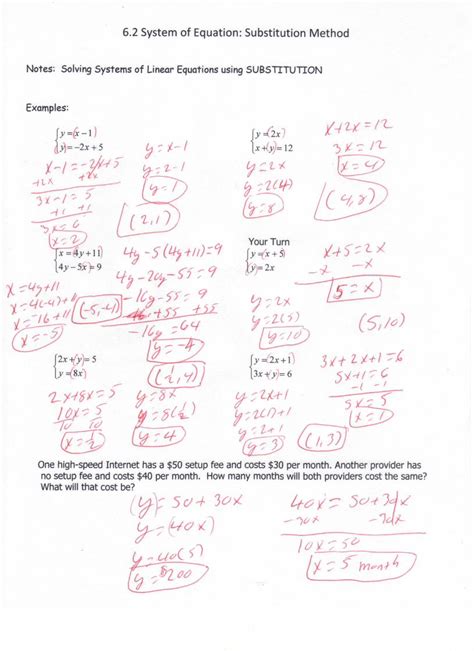 6.2 System of Equation: Substitution Method
Notes: Solving Systems of Linear Equations using SUBSTITUTION
Examples:
y = x − 1
y = −2x + 5
x-1 = -2x+5
+2x +2x
3x-1 = 5
+1 +1
3x = 6
x = 2
y = x-1
y = 2-1
y = 1
(2,1)
y = 2x
x + y = 12
x+2x = 12
3x = 12
x = 4
y = 2x
y = 2(4)
y = 8
(4,8)
x = 4y + 11
4y − 5x = 9
4y - 5(4y+11) = 9
4y - 20y - 55 = 9
-16y - 55 = 9
+55 +55
-16y = 64
y = -4
x = 4y+11
x = 4(-4)+11
x = -16+11
x = -5
(-5,-4)
Your Turn
y = x + 5
y = 2x
x+5 = 2x
-x -x
5 = x
y = 2x
y = 2(5)
y = 10
(5,10)
2x + y = 5
y = 8x
2x+8x = 5
10x = 5
10 10
x = 1/2
(1/2,4)
y = 8x
y = 8(1/2)
y = 4
y = 2x + 1
3x + y = 6
3x + 2x+1 = 6
5x+1 = 6
-1 -1
5x = 5
x = 1
y = 2x+1
y = 2(1)+1
y = 2+1
y = 3
(1,3)
One high-speed Internet has a $50 setup fee and costs $30 per month. Another provider has
no setup fee and costs $40 per month. How many months will both providers cost the same?
What will that cost be?
y = 50 + 30x
y = 40x
y = 40(5)
y = $200
40x = 50+30x
-30x -30x
10x = 50
x = 5 month